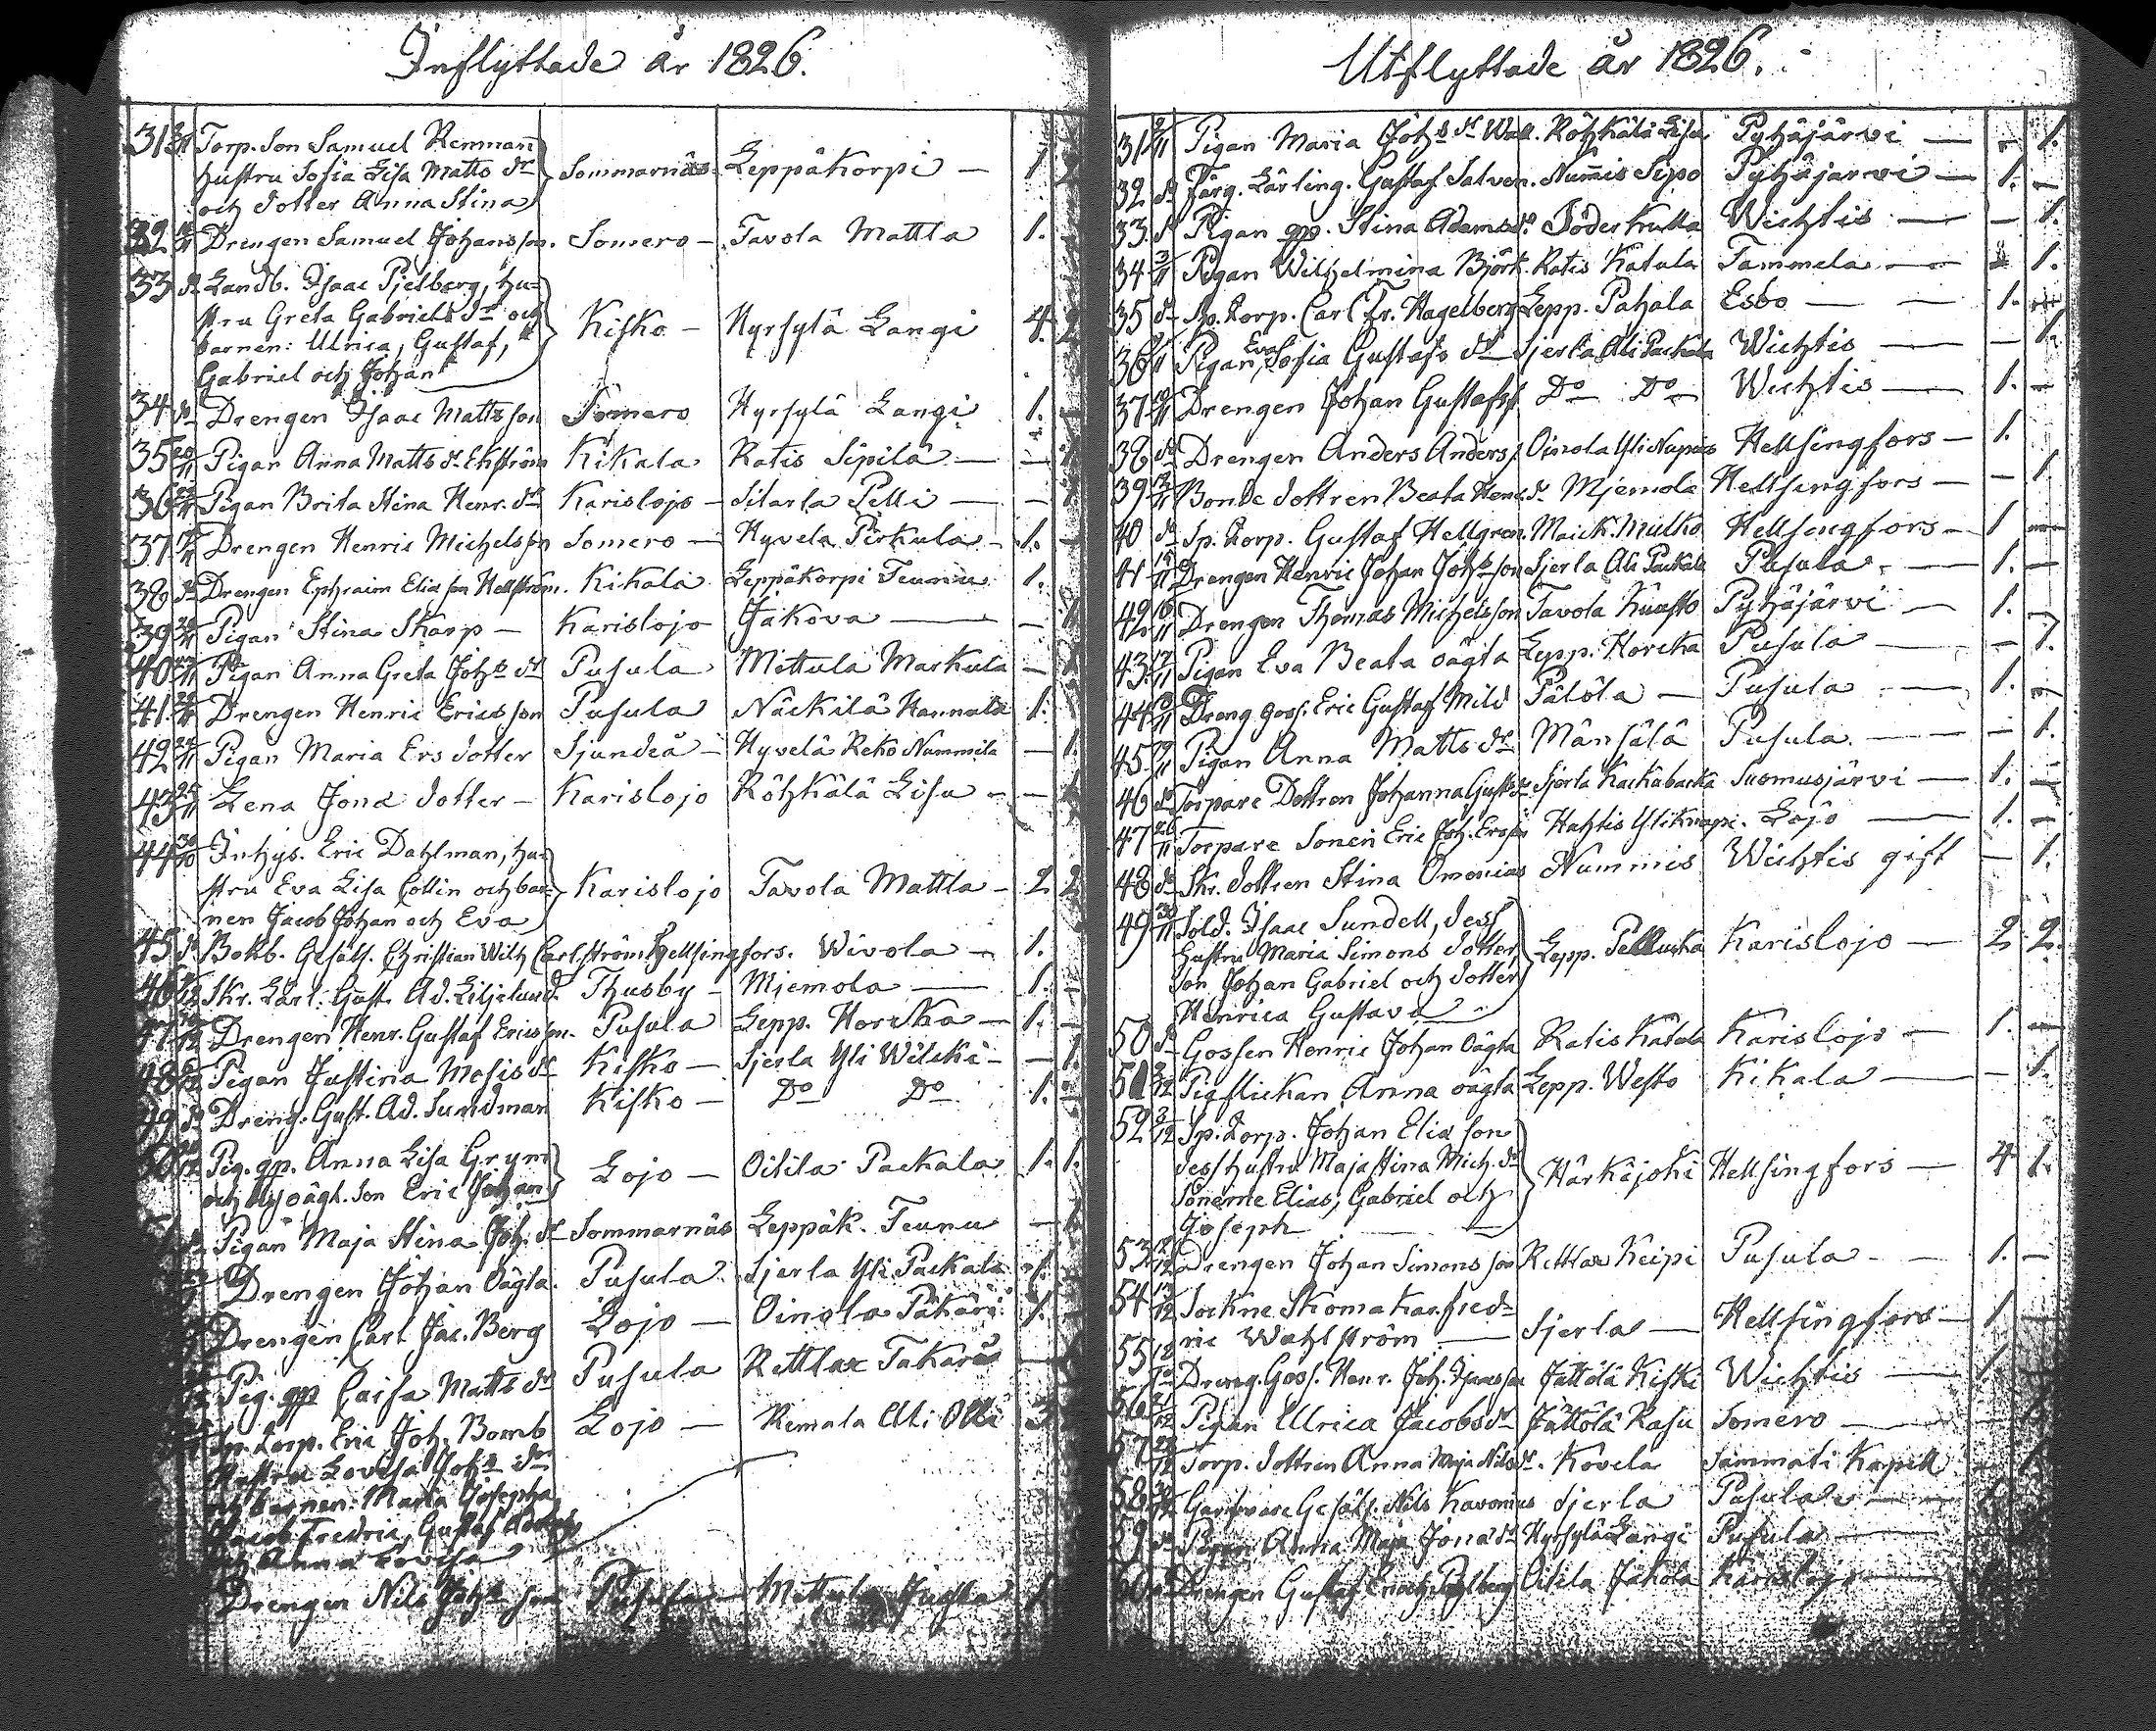 Inflyttade år 1826.
31 Torp. Son Samuel Remman
hustru Sofia Lisa Matts dr
och dotter Anna Stina Sommarnäs Leppäkorpi — 1
32 Drengen Samuel Johansson. Somero — Tavola Mattla 1. —
33 do Landb. Isaac Pjelberg, hu-
stru Greta Gabriels dr och
barnen: Ulrica, Gustaf,
Gabriel och Johan Kisko — Hyrsylä Langi 4.
34 do Drengen Isaac Mattsson Somero Hyrsylä Langi 1. —
35 20/11 Pigan Anna Matts dr Ekström Kikala Ratis Sipilä — —
36 Pigan Brita Stina Henr. dr Karislojo — Sitarla Pelli — —
37 Drengen Henric Michelsson Somero — Hyvela Pirkula — 1. —
38 do Drengen Ephraim Eliasson Hellström. Kikala Leppäkorpi Teunu 1.
39 Pigan Stina Skarp — Karislojo Jakova — —
40 27/11 Pigan Anna Greta Johs dr Pusula Mettula Markula —
41. Drengen Henric Ericsson Pusula Näckilä Hannula 1.
42 Pigan Maria Ers dotter Sjundeå — Hyvelä Reko Nummila — 1.
43 Lena Jona dotter — Karislojo Röhkälä Lisu — —
44 30/10 Inhys. Eric Dahlman, hu-
stru Eva Lisa Collin och bar-
nen Jacob Johan och Eva Karislojo Tavola Mattla — 2 2
45 do Bokb. Gesäll. Christian Wilh Carlström Hellsingfors. Wivola — 1.
46 Skr. Lärl. Gust. Ad. Liljelund. Thusby — Mjemola — 1. —
47 Drengen Henr. Gustaf Ericsson. Pusula Lepp. Horcka — 1. —
48 Pigan Justina Mosis dr Kisko — Sjerla Yli Wilcki — — 1.
49 do Dreng. Gust. Ad. Sundman Kisko — Do Do 1. —
50 Pig. gp. Anna Lisa Grym
och dess oägt. Son Eric Johan Lojo — Oitila Packala 1. 1.
Pigan Maja Stina Joh. dr Sommarnäs Leppäk. Teunu —
Drengen Johan Oägta. Pusula Sjerla Yli Packala 1.
Drengen Carl Jac. Berg Lojo — Oinola Pähäri 1. —
Pig. gp Caisa Matts dr Pusula Rettlax Takara —
Sp. Torp. Eric Joh. Bomb Lojo — Remala Ali Olli 3
Hustru Lovisa Johs dr
och barnen: Maria Josepha
Jacob Fredric, Gustaf
och Anna Lovisa
Drengen Nils Johs son Pusula — Mettula 1
Utflyttade år 1826.
31 2/11 Pigan Maria Johs dr Wall. Röhkälä Lisu Pyhäjärvi — — 1.
32 do Färg. Lärling. Gustaf Salven. Nummis Sipo Pyhäjärvi — 1. —
33. do Pigan gp. Stina Adams dr Söderkulla Wichtis — — 1.
34 3/11 Pigan Wilhelmina Björk. Ratis Katala Tammela — 1.
35 do Sp. Torp. Carl Fr. Hagelberg Lepp. Pahala Esbo — — 1. —
36 Pigan Eva Sofia Gustafs dr Sjerla Ali Packala Wichtis — — 1.
37 Drengen Johan Gustafss. Do Do Wichtis — 1. —
38 do Drengen Anders Anderss. Oinola Yli Nupius Hellsingfors — 1.
39 12/11 Bonde dottren Beata Henr. dr Mjemola Hellsingfors — — 1.
40 do Sp. Torp. Gustaf Hellgren. Maick. Mulko Hellsingfors — 1 —
41 15/11 Drengen Henric Johan Johsson Sjerla Ali Packala Pusula. — 1. —
42 16/11 Drengen Thomas Michelsson Tavola Kuusto Pyhäjärvi — 1. —
43. 17/11 Pigan Eva Beata oägta Lepp. Horcka Pusula — — 1.
44 Dreng goss. Eric Gustaf Mild Pälölä — Pusula — 1. —
45. 19/11 Pigan Anna Matts dr Mänsälä Pusula — — 1.
46 do Torpare Dottren Johanna Gusts dr Sjerla Kackäbackä Suomusjärvi — 1. —
47 26/11 Torpare Sonen Eric Joh. Ersson Hahtis Yli Knapi. Lojo — 1. —
48 do Skr. dottren Stina Omonias Nummis Wichtis gift — 1.
49 30/11 Sold. Isaac Sundell, dess
hustru Maria Simons dotter,
Son Johan Gabriel och dotter
Henrica Gustava Lepp. Pelluska Karislojo — 2. 2.
50 do Gossen Henric Johan Oägta Ratis Katala Karislojo — 1. —
51 2/12 Pigflickan Anna oägta Lepp. Westo Kikala — — 1.
52 3/12 Sp. Torp. Johan Eliasson
dess Hustru Maja Stina Mich. dr
Sönerne Elias, Gabriel och
Joseph — Härkäjoki Hellsingfors — 4 1.
53. Drengen Johan Simonsson Rettlax Keipi Pusula — — 1. —
54 13/12 Sockne Skomakar. Fred-
ric Wahlström — Sjerla — Hellsingfors — 1. —
55 Dreng. Goss. Henr. Joh. Isaacsson Jättölä Kiski Wichtis — 1.
56 21/12 Pigan Ulrica Jacobs dr Jättölä Rasu Somero —
57 Torp. dottren Anna Maja Nils dr. Kovela Sammati Kapell
58 Garfvare Gesäll. Nils Kavonius Sjerla Pusula —
59 do Pigan Anna Maja Jona dr Hyrsylä Langi Pusula —
60 Drengen Gustaf Oitila Jakola Karislojo —